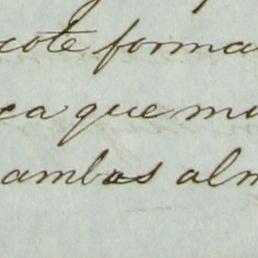 cote forma
ca que mu
ambas alm